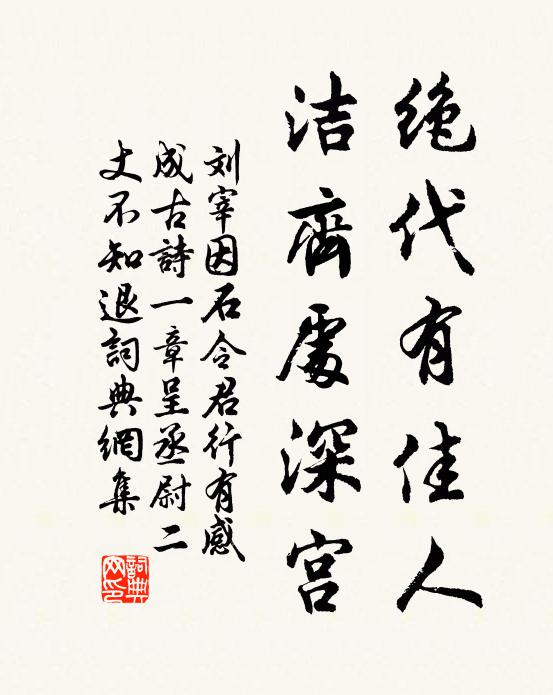 绝代有佳人
洁齊處深宫
刘宰因石令君行有感
成古詩一章呈丞尉二
丈不知退詞典網集
詞典
网印